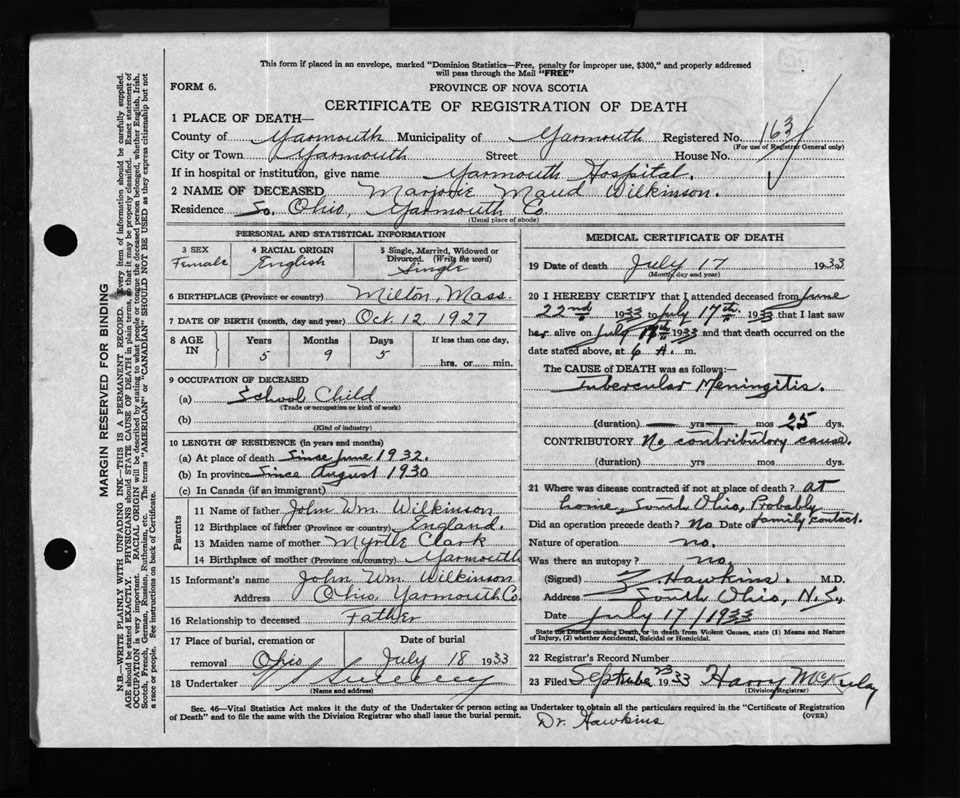 This form if placed in an envelope, marked "Dominion Statistics—Free, penalty for improper use, $300," and properly addressed
will pass through the Mail "FREE"
FORM 6.
PROVINCE OF NOVA SCOTIA
CERTIFICATE OF REGISTRATION OF DEATH
1 PLACE OF DEATH—
County of Yarmouth Municipality of Yarmouth Registered No. 163
(For use of Registrar General only)
City or Town Yarmouth Street House No.
If in hospital or institution, give name Yarmouth Hospital.
2 NAME OF DECEASED Marjorie Maud Wilkinson.
Residence So. Ohio, Yarmouth Co.
(Usual place of abode)
PERSONAL AND STATISTICAL INFORMATION
3 SEX
Female
4 RACIAL ORIGIN
English
5 Single, Married, Widowed or
Divorced. (Write the word)
Single
6 BIRTHPLACE (Province or country) Milton, Mass.
7 DATE OF BIRTH (month, day and year) Oct 12, 1927
8 AGE IN
Years Months Days If less than one day,
5 9 5 hrs. or min.
9 OCCUPATION OF DECEASED
(a) School Child
(Trade or occupation or kind of work)
(b)
(Kind of industry)
10 LENGTH OF RESIDENCE (in years and months)
(a) At place of death Since June 1932.
(b) In province Since August 1930
(c) In Canada (if an immigrant)
Parents
11 Name of father John Wm Wilkinson
12 Birthplace of father (Province or country) England.
13 Maiden name of mother Myrtle Clark
14 Birthplace of mother (Province or country) Yarmouth
15 Informant's name John Wm. Wilkinson
Address Ohio, Yarmouth Co.
16 Relationship to deceased Father
17 Place of burial, cremation or Date of burial
removal Ohio July 18 1933
18 Undertaker Sweeney
(Name and address)
MEDICAL CERTIFICATE OF DEATH
19 Date of death July 17 1933
(Month, day and year)
20 I HEREBY CERTIFY that I attended deceased from June
22nd 1933 to July 17th 1933 that I last saw
her alive on July 17th 1933 and that death occurred on the
date stated above, at 6 A. m.
The CAUSE of DEATH was as follows:
Tubercular Meningitis.
(duration) yrs mos 25 dys.
CONTRIBUTORY No contributory cause.
(duration) yrs. mos. dys.
21 Where was disease contracted if not at place of death? at
home, South Ohio, Probably
family contact.
Did an operation precede death? No Date of
Nature of operation no.
Was there an autopsy? no.
(Signed) Hawkins. M.D.
Address South Ohio, N.S.
Date July 17/1933
State the Disease causing Death, or in death from Violent Causes, state (1) Means and Nature
of Injury, (2) whether Accidental, Suicidal or Homicidal.
22 Registrar's Record Number
23 Filed September 1933 Harry
(Division Registrar)
Sec. 46—Vital Statistics Act makes it the duty of the Undertaker or person acting as Undertaker to obtain all the particulars required in the "Certificate of Registration
of Death" and to file the same with the Division Registrar who shall issue the burial permit.
(OVER)
Dr. Hawkins
MARGIN RESERVED FOR BINDING
N.B.—WRITE PLAINLY WITH UNFADING INK—THIS IS A PERMANENT RECORD. Every item of information should be carefully supplied.
AGE should be stated EXACTLY. PHYSICIANS should STATE CAUSE OF DEATH in plain terms, so that it may be properly classified. Exact statement of
OCCUPATION is very important. RACIAL ORIGIN will be described by stating to what people or tongue the deceased person belonged, whether English, Irish,
Scotch, French, German, Russian, Ruthenian, etc. The terms "AMERICAN" or "CANADIAN" SHOULD NOT BE USED as they express citizenship but not
a race or people. See instructions on back of Certificate.